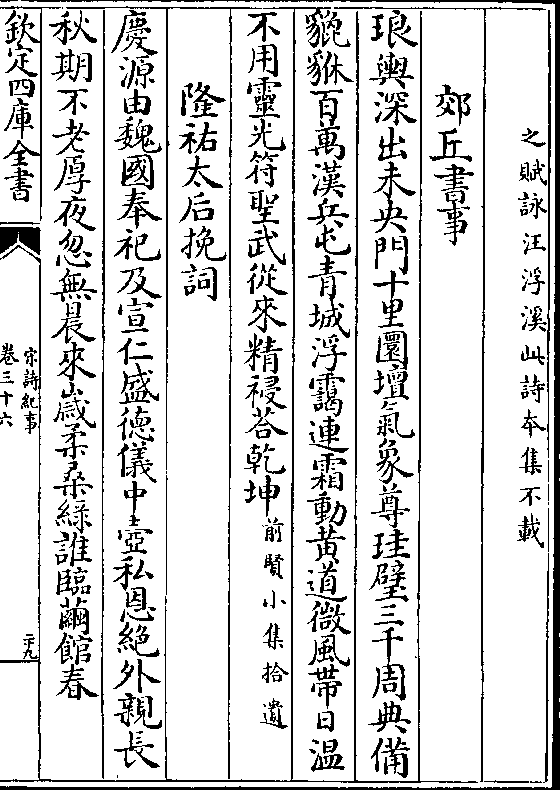 之賦詠汪浮溪此詩本集不載
郊丘書事
琅輿深出未央門十里圜壇氣象尊珪璧三千周典備
貔貅百萬漢兵屯青城浮靄連霜動黃道微風帶日溫
不用靈光符聖武從來精祲荅乾坤前賢小集拾遺
隆祐太后挽詞
慶源由魏國奉祀及宣仁盛德儀中壼私恩絶外親長
秋期不老厚夜忽無晨來歲柔桑綠誰臨繭館春
欽定四庫全書
宋詩紀事
卷三十六
二十九